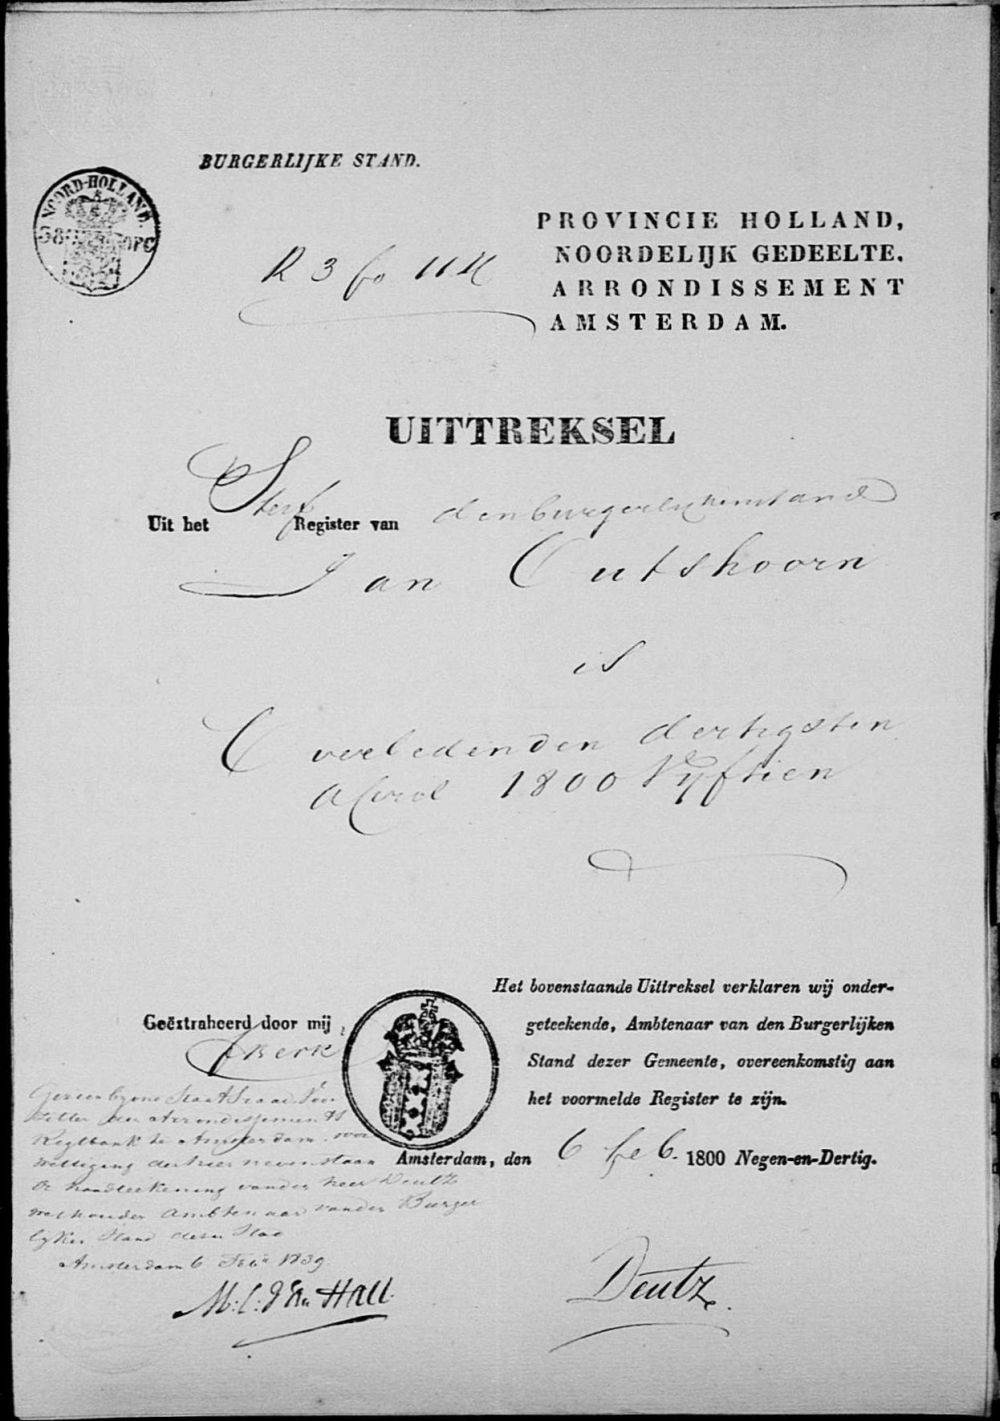 BURGERLIJKE STAND.
NOORD-HOLLAND.
PROVINCIE HOLLAND,
NOORDELIJK GEDEELTE.
ARRONDISSEMENT
AMSTERDAM.
R 3 fo
UITTREKSEL
Uit het Sterf Register van den burgerlijkenstand
Jan Outshoorn
is
Overleden den dertigsten
April 1800 Vyftien
Het bovenstaande Uittreksel verklaren wij onder-
geteekende, Ambtenaar van den Burgerlijken
Stand dezer Gemeente, overeenkomstig aan
het voormelde Register te zijn.
Geëxtraheerd door mij,
Amsterdam, den 6 feb. 1800 Negen-en-Dertig.
Gezien by ons Staatsraad Voor
zitter der Arrondissements
Regtbank te Amsterdam voor
wettiging der hier nevenstaan
de handteekening van den heer Deutz
wethouder Ambtenaar van den Burger
lyken Stand dezer Stad
Amsterdam 6 1839
M. C. Van Hall
Deutz